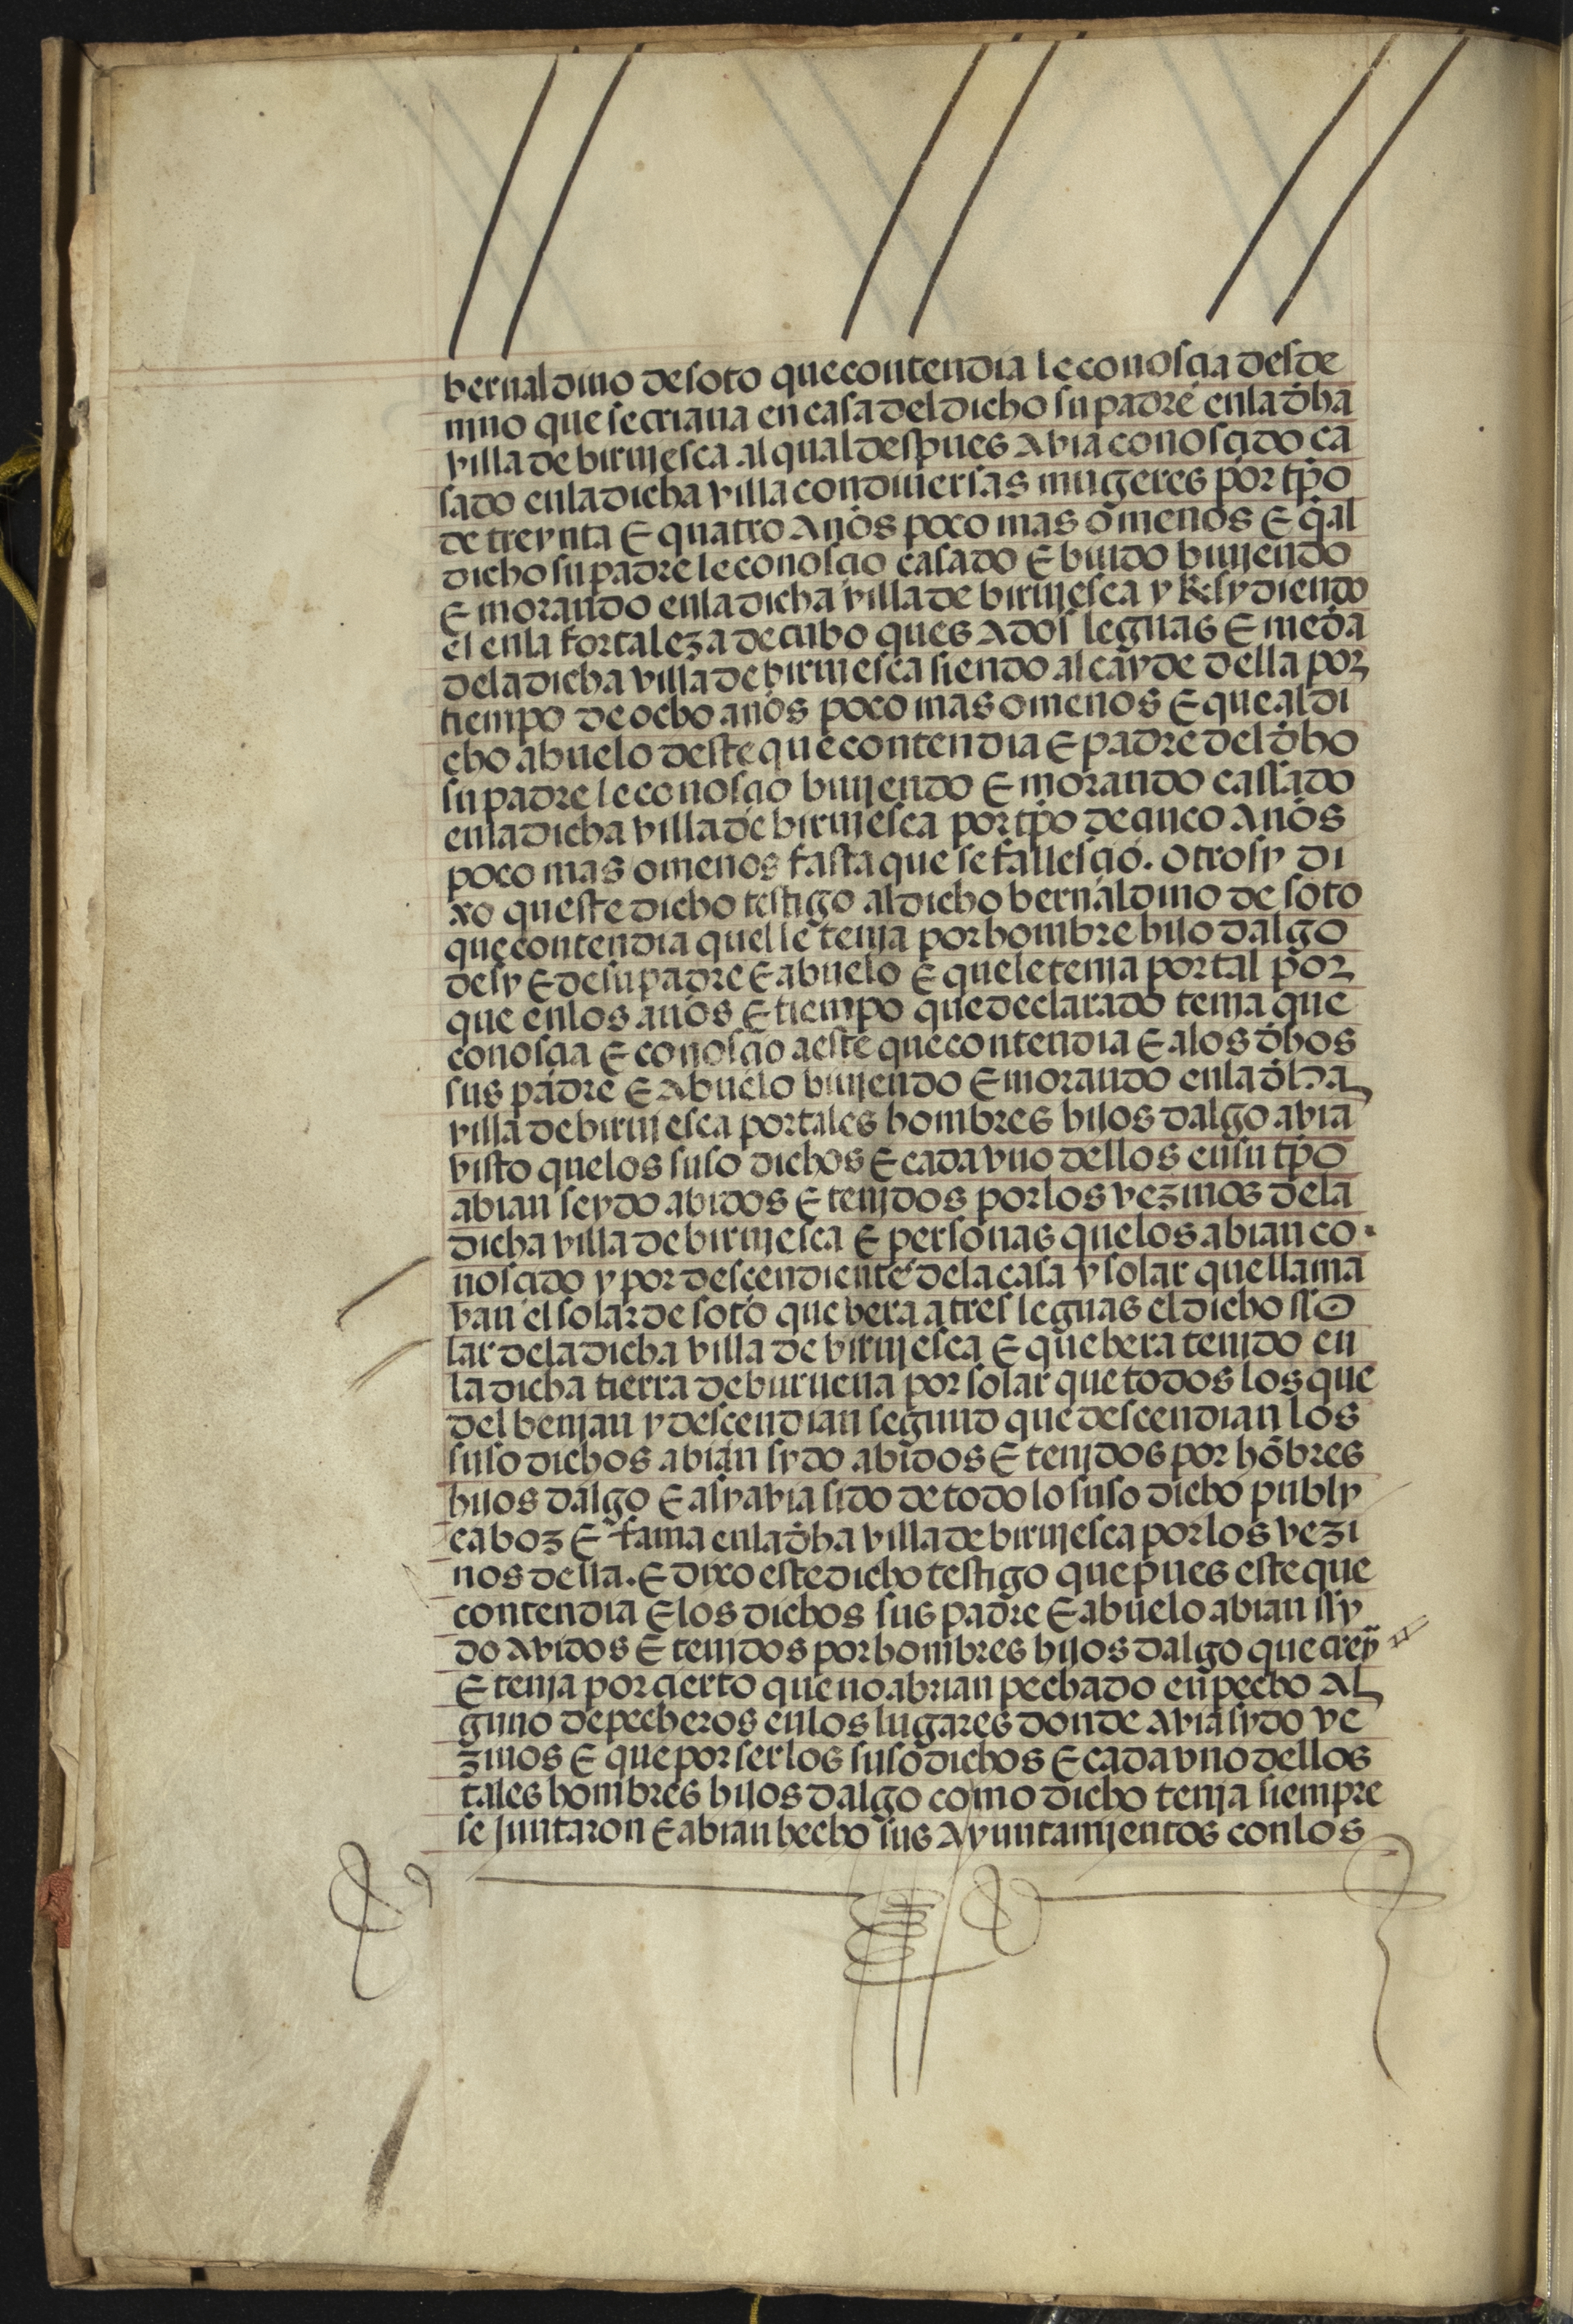 bernaldino de soto que contendia le conosçia desde
nino que se criaua en casa del dicho su padre en la dha
villa de birujesca al qual despues avia conosçido ca
sado en la dicha villa con diuersas mugeres por tpo
de treynta E quatro Años poco mas o menos E q̃ al
dicho su padre le conosçio casado E biudo biujendo
E morando en la dicha villa de birujesca y Resydiendo
el en la fortaleza de cubo ques A dos leguas E meda
de la dicha villa de birujesca siendo alcayde della por
tiempo de ocho años poco mas o menos E que al di
cho abuelo deste que contendia E padre del dho
su padre le conosçio biujendo E morando cassado
en la dicha villa de birujesca por tpo de çinco Años
poco mas o menos fasta que se fallesçio. otrosy di
xo queste dicho testigo al dicho bernaldino de soto
que contendia quel le tenja por hombre hijo dalgo
de sy E de su padre E abuelo E que le tenja por tal por
que en los años E tiempo que declarado tenja que
conosçia E conosçio a este que contendia E a los dhos
sus padre E Abuelo biujendo E morando en la dha
villa de birujesca por tales hombres hijos dalgo avia
visto que los suso dichos E cada vno dellos en su tpo
abian seydo abidos E tenjdos por los vezinos de la
dicha villa de birujesca E personas que los abian co
nosçido y por desçendiente de la casa y solar que llama
van el solar de soto que hera a tres leguas el dicho sso
lar de la dicha villa de virujesca E que hera tenjdo en
la dicha tierra de burueua por solar que todos los que
del benjan y desçendian segund que desçendian los
suso dichos abian sydo abidos E tenjdos por hōbres
hijos dalgo E asy avia sido de todo lo suso dicho publy
ca boz E fama en la dha villa de birujesca por los vezi
nos della. E dixo este dicho testigo que pues este que
contendia E los dichos sus padre E abuelo abian ssy
do Avidos E tenjdos por hombres hijos dalgo que crey
E tenja por çierto que no abrian pechado en pecho Al
guno de pecheros en los lugares donde Avia sydo ve
zinos E que por ser los suso dichos E cada vno dellos
tales hombres hijos dalgo como dicho tenja siempre
se juntaron E abian hecho sus Ayuntamjentos con los